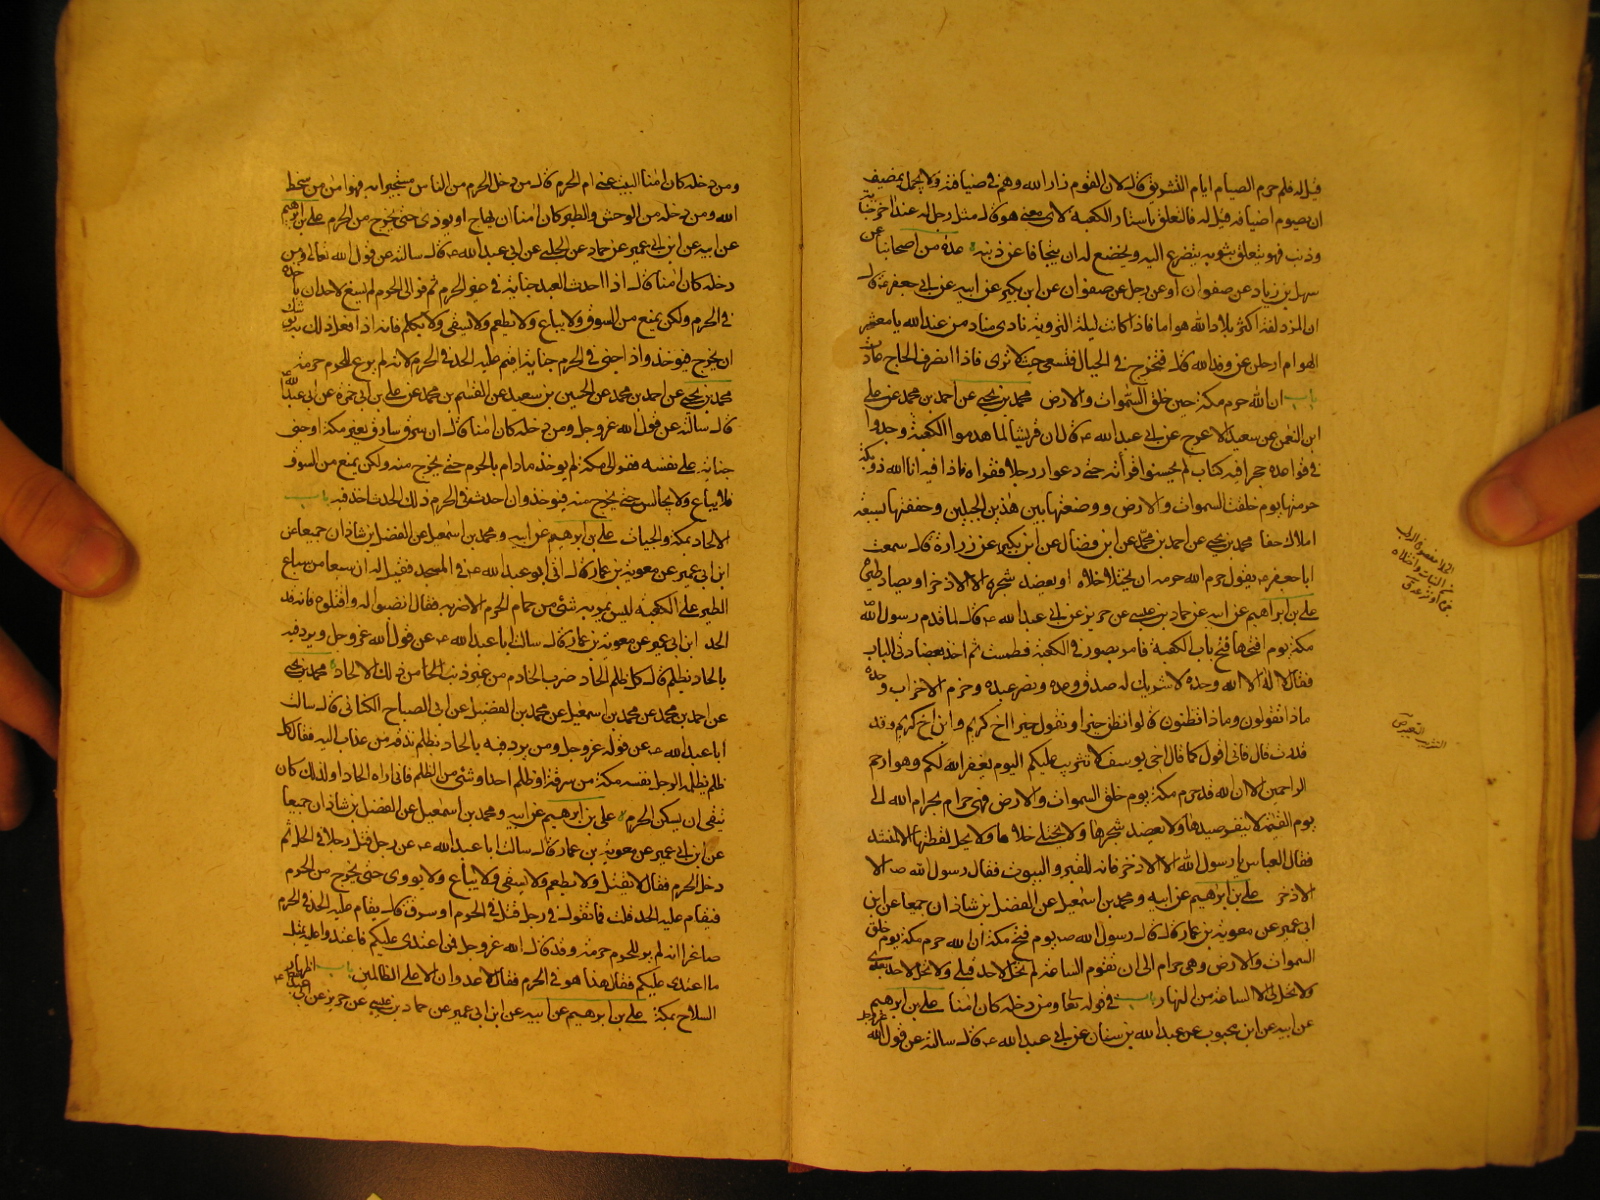 فيل له فلم حرم الصيام ايام التشريق قال لان القوم زار الله وهم في ضيافته ولا يجمل بمضيف
ان يصوم اضيافه قيل له فالتعلق باستار الكعبة لاى معنى هو قال مثل رجل له عند اخر جناية
وذنب فهو يتعلق بثوبه يتضرع اليه ويخضع له ان يتجافا عن ذنبه عدة من اصحابنا عن
سهل بن زياد عن صفوان او عن رجل عن صفوان عن ابن بكير عن ابيه عن ابي جعفر ع قال
ان المزدلفة اكثر بلاد الله هواما فاذا كانت ليلة التروية نادى مناد من عند الله يا معشر
الهوام ارحلن عن وفد الله قال فتخرج في الجبال فتسعى حيث لا ترى فاذا انصرف الحاج عادت
باب ان الله حرم مكة حين خلق السموات والارض محمد بن يحيى عن احمد بن محمد عن علي
ابن النعمن عن سعيد الاعرج عن ابي عبد الله ع قال ان قريشا لما هدموا الكعبة وجدوا
في قواعده حجرا فيه كتاب لم يحسنوا قرأته حتى دعوا رجلا فقرأه فاذا فيه انا الله ذو بكة
حرمتها يوم خلقت السموات والارض ووضعتها بين هذين الجبلين وحففتها بسبعة
املاك حفا محمد بن يحيى عن احمد بن محمد عن ابن فضال عن ابن بكير عن زرارة قال سمعت
ابا جعفر ع يقول حرم الله حرمه ان يختلا خلاه او يعضد شجره الا الاذخر او يصاد طيره
علي بن ابراهيم عن ابيه عن حماد بن عيسى عن حريز عن ابي عبد الله ع قال لما قدم رسول الله
مكة يوم افتتحها فتح باب الكعبة فامر بصور في الكعبة فطمست ثم اخذ بعضادتي الباب
فقال لا اله الا الله وحده لا شريك له صدق وعده ونصر عبده وهزم الاحزاب وحده
ماذا تقولون وماذا تظنون قالوا نظن خيرا ونقول خيرا اخ كريم وابن اخ كريم وقد
قدرت قال فاني اقول كما قال اخي يوسف لا تثريب عليكم اليوم يغفر الله لكم وهو ارحم
الراحمين الا ان الله قد حرم مكة يوم خلق السموات والارض فهي حرام بحرام الله الى
يوم القيمة لا ينفر صيدها ولا يعضد شجرها ولا يختلى خلاها ولا يحل لقطتها الا لمنشد
فقال العباس يا رسول الله الا الاذخر فانه للقبر والبيوت فقال رسول الله ص الا
الاذخر علي بن ابراهيم عن ابيه ومحمد بن اسمعيل عن الفضل بن شاذان جميعا عن ابن
ابي عمير عن معوية بن عمار قال قال رسول الله ص يوم فتح مكة ان الله حرم مكة يوم خلق
السموات والارض وهي حرام الى ان تقوم الساعة لم تحل لاحد قبلي ولا تحل لاحد بعدي
ولا تحل لي الا ساعة من النهار باب في قوله تعا ومن دخله كان امنا علي بن ابراهيم
عن ابيه عن ابن محبوب عن عبد الله بن سنان عن ابي عبد الله ع قال سالته عن قول الله عز وجل
ومن دخله كان امنا البيت عنى ام الحرم قال من دخل الحرم من الناس مستجيرا به فهو امن من سخط
الله ومن دخله من الوحش والطير كان امنا ان يهاج او يوذى حتى يخرج من الحرم علي بن ابرهيم
عن ابيه عن ابن ابي عمير عن حماد عن الحلبي عن ابي عبد الله ع قال سالته عن قول الله تعالى ومن
دخله كان امنا قال اذا احدث العبد جناية في غير الحرم ثم فر الى الحرم لم يسع لاحد ان ياخذه
في الحرم ولكن يمنع من السوق ولا يباع ولا يطعم ولا يسقى ولا يكلم فانه اذا فعل ذلك به يوشك
ان يخرج فيوخذ واذا جنى في الحرم جناية اقيم عليه الحد في الحرم لانه لم يرع للحرم حرمة
محمد بن يحيى عن احمد بن محمد عن الحسين بن سعيد عن القسم بن محمد عن علي بن ابي حمزة عن ابي عبد الله
قال سالته عن قول الله عز وجل ومن دخله كان امنا قال ان سرق سارق بغير مكة او جنى
جناية على نفسه ففر الى مكة لم يوخذ مادام بالحرم حتى يخرج منه ولكن يمنع من السوق
فلا يباع ولا يجالس حتى يخرج منه فيوخذ وان احدث في الحرم ذلك الحدث اخذ فيه باب
الالحاد بمكة والجنايات علي بن ابرهيم عن ابيه ومحمد بن اسمعيل عن الفضل بن شاذان جميعا عن
ابن ابي عمير عن معوية بن عمار قال اتى ابو عبد الله ع في المسجد فقيل له ان سبعا من سباع
الطير على الكعبة ليس يمر به شئ من حمام الحرم الا ضربه فقال انصبوا له واقتلوه فانه قد
الحد ابن ابي عمير عن معوية بن عمار قال سالت ابا عبد الله ع عن قول الله عز وجل ومن يرد فيه
بالحاد بظلم قال كل ظلم الحاد ضرب الخادم من غير ذنب الحا من ذلك الالحاد محمد بن يحيى
عن احمد بن محمد عن محمد بن اسمعيل عن محمد بن الفضيل عن ابي الصباح الكناني قال سالت
ابا عبد الله ع عن قوله عز وجل ومن يرد فيه بالحاد بظلم نذقه من عذاب اليم فقال كل
ظلم يظلمه الرجل نفسه بمكة من سرقة او ظلم احد او شئ من الظلم فاني اراه الحادا ولذلك كان
يتقى ان يسكن الحرم علي بن ابرهيم عن ابيه ومحمد بن اسمعيل عن الفضل بن شاذان جميعا
عن ابن ابي عمير عن معوية بن عمار قال سالت ابا عبد الله ع عن رجل قتل رجلا في الحل ثم
دخل الحرم فقال لا يقتل ولا يطعم ولا يسقى ولا يباع ولا يووى حتى يخرج من الحرم
فيقام عليه الحد قلت فما تقول في رجل قتل في الحرم او سرق قال يقام عليه الحد في الحرم
صاغرا انه لم ير للحرم حرمة وقد قال الله عز وجل فمن اعتدى عليكم فاعتدوا عليه بمثل
ما اعتدى عليكم فقال هذا هو في الحرم فقال لا عدوان الا على الظالمين باب اظهار
السلاح بمكة علي بن ابرهيم عن ابيه عن ابن ابي عمير عن حماد بن عيسى عن حريز عن ابي عبد الله ع